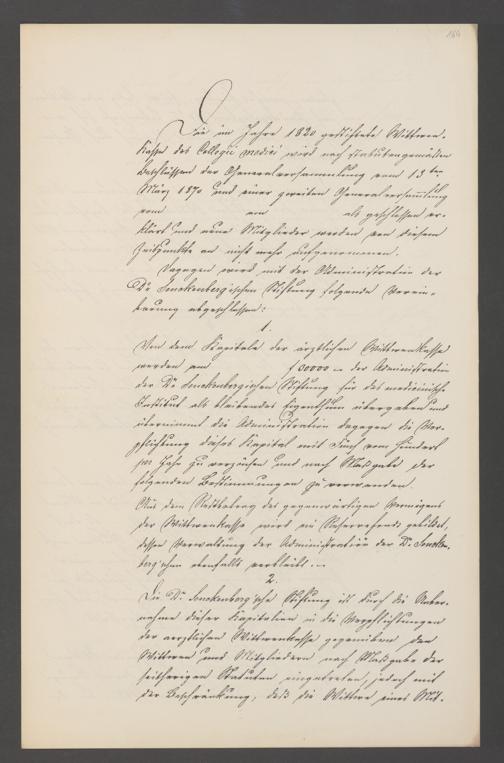 164
Die im Jahre 1820 gestiftete Wittwen-
Kasse des Collegii medici wird nach statutengemäßen
Beschlüssen der Generalversammlung vom 13ten
März 1870 und einer zweiten Generalversammlung
vom am als geschlossen er-
klärt und neue Mitglieder werden von diesem
Zeitpunkte an nicht mehr aufgenommen.
Dagegen wird mit der Administration der
Dr. Senckenbergischen Stiftung folgende Verein-
barung abgeschlossen:
1.
Von dem Kapitale der ärztlichen Wittwenkasse
werden am f 00000 der Administration
der Dr. Senckenbergischen Stiftung für das medicinische
Institut als bleibendes Eigenthum übergeben und
übernimmt die Administration dagegen die Ver-
pflichtung dieses Kapital mit fünf vom Hundert
per Jahr zu verzinsen und nach Maßgabe der
folgenden Bestimmungen zu verwenden.
Aus dem Restbetrag des gegenwärtigen Vermögens
der Wittwenkasse wird ein Reservefonds gebildet,
dessen Verwaltung der Administration der Dr. Sencken-
berg'schen ebenfalls verbleibt.
2.
Die Dr. Senckenberg'sche Stiftung ist durch die Ueber-
nahme dieser Kapitalien in die Verpflichtungen
der ärztlichen Wittwenkasse gegenüber den
Wittwen und Mitgliedern nach Maßgabe der
seitherigen Statuten eingetreten, jedoch mit
der Beschränkung, daß die Wittwe eines Mit-